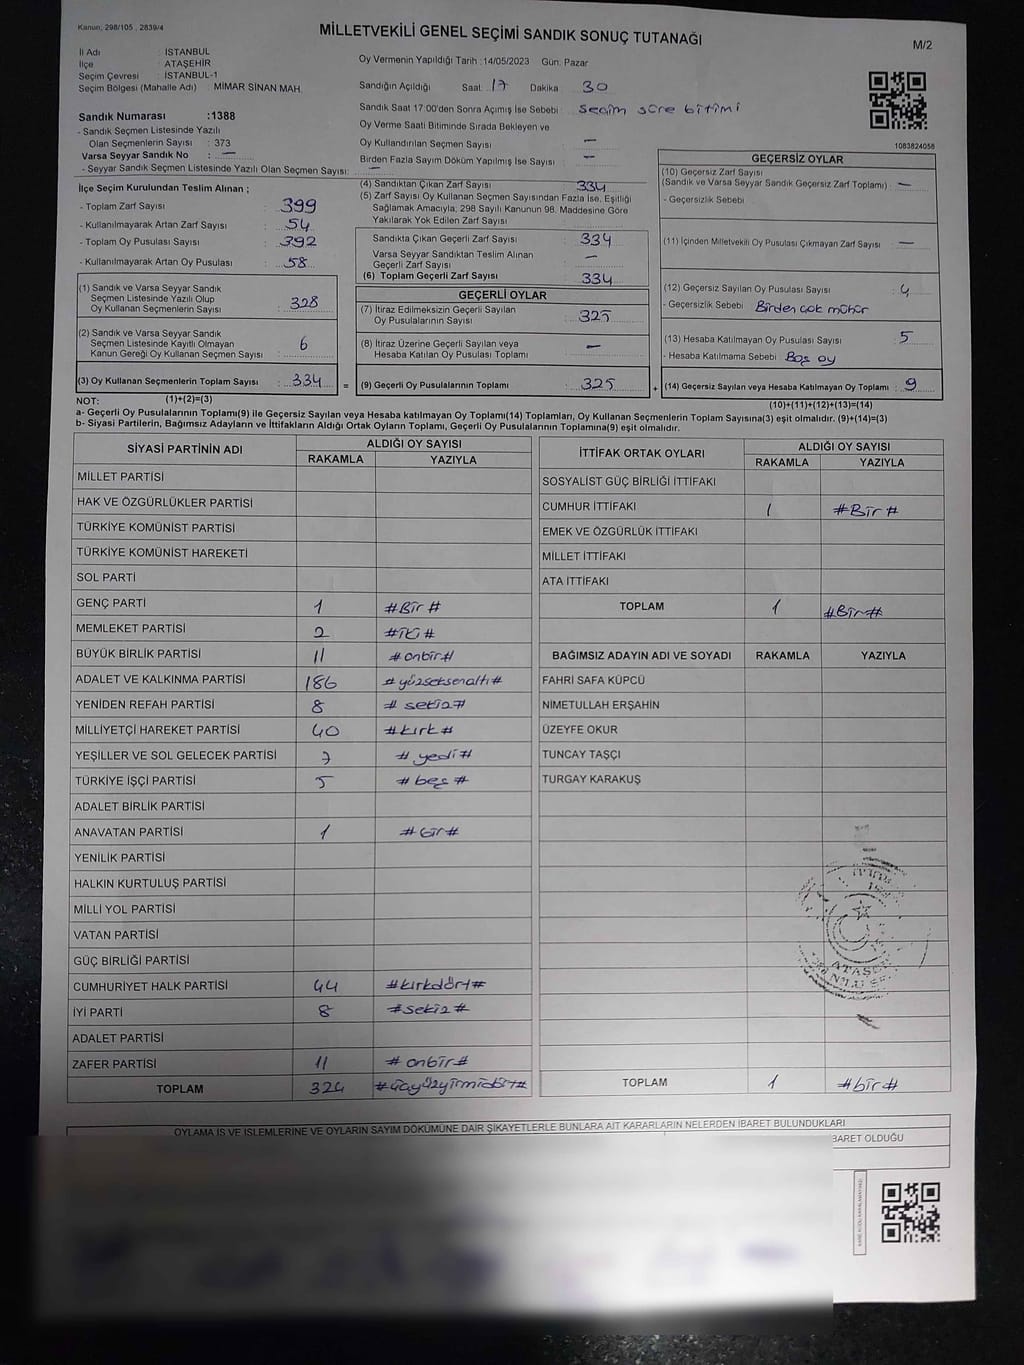 Kanun; 298/105 , 2839/4
MİLLETVEKİLİ GENEL SEÇİMİ SANDIK SONUÇ TUTANAĞI
M/2
İl Adı : İSTANBUL
İlçe : ATAŞEHİR
Seçim Çevresi : İSTANBUL-1
Seçim Bölgesi (Mahalle Adı) : MİMAR SİNAN MAH.
Oy Vermenin Yapıldığı Tarih :14/05/2023 Gün: Pazar
Sandığın Açıldığı Saat: 17 Dakika : 30
Sandık Saat 17:00'den Sonra Açımış İse Sebebi : seçim süre bitimi
Oy Verme Saati Bitiminde Sırada Bekleyen ve
Oy Kullandırılan Seçmen Sayısı : —
Birden Fazla Sayım Döküm Yapılmış İse Sayısı : —
Sandık Numarası :1388
- Sandık Seçmen Listesinde Yazılı
Olan Seçmenlerin Sayısı : 373
Varsa Seyyar Sandık No : —
- Seyyar Sandık Seçmen Listesinde Yazılı Olan Seçmen Sayısı: —
1083824056
İlçe Seçim Kurulundan Teslim Alınan ;
- Toplam Zarf Sayısı : 399
- Kullanılmayarak Artan Zarf Sayısı : 54
- Toplam Oy Pusulası Sayısı : 392
- Kullanılmayarak Artan Oy Pusulası : 58
(1) Sandık ve Varsa Seyyar Sandık
Seçmen Listesinde Yazılı Olup
Oy Kullanan Seçmenlerin Sayısı : 328
(2) Sandık ve Varsa Seyyar Sandık
Seçmen Listesinde Kayıtlı Olmayan
Kanun Gereği Oy Kullanan Seçmen Sayısı : 6
(3) Oy Kullanan Seçmenlerin Toplam Sayısı : 334 =
(4) Sandıktan Çıkan Zarf Sayısı : 334
(5) Zarf Sayısı Oy Kullanan Seçmen Sayısından Fazla İse, Eşitliği
Sağlamak Amacıyla, 298 Sayılı Kanunun 98. Maddesine Göre
Yakılarak Yok Edilen Zarf Sayısı :
Sandıkta Çıkan Geçerli Zarf Sayısı : 334
Varsa Seyyar Sandıktan Teslim Alınan
Geçerli Zarf Sayısı : —
(6) Toplam Geçerli Zarf Sayısı : 334
GEÇERLİ OYLAR
(7) İtiraz Edilmeksizin Geçerli Sayılan
Oy Pusulalarının Sayısı : 325
(8) İtiraz Üzerine Geçerli Sayılan veya
Hesaba Katılan Oy Pusulası Toplamı : —
(9) Geçerli Oy Pusulalarının Toplamı : 325 +
GEÇERSİZ OYLAR
(10) Geçersiz Zarf Sayısı
(Sandık ve Varsa Seyyar Sandık Geçersiz Zarf Toplamı) : —
- Geçersizlik Sebebi
(11) İçinden Milletvekili Oy Pusulası Çıkmayan Zarf Sayısı : —
(12) Geçersiz Sayılan Oy Pusulası Sayısı : 4
- Geçersizlik Sebebi : Birden çok mühür
(13) Hesaba Katılmayan Oy Pusulası Sayısı : 5
- Hesaba Katılmama Sebebi : Boş oy
(14) Geçersiz Sayılan veya Hesaba Katılmayan Oy Toplamı : 9
NOT: (1)+(2)=(3)
(10)+(11)+(12)+(13)=(14)
a- Geçerli Oy Pusulalarının Toplamı(9) ile Geçersiz Sayılan veya Hesaba katılmayan Oy Toplamı(14) Toplamları, Oy Kullanan Seçmenlerin Toplam Sayısına(3) eşit olmalıdır. (9)+(14)=(3)
b- Siyasi Partilerin, Bağımsız Adayların ve İttifakların Aldığı Ortak Oyların Toplamı, Geçerli Oy Pusulalarının Toplamına(9) eşit olmalıdır.
SİYASİ PARTİNİN ADI ALDIĞI OY SAYISI
RAKAMLA YAZIYLA
MİLLET PARTİSİ
HAK VE ÖZGÜRLÜKLER PARTİSİ
TÜRKİYE KOMÜNİST PARTİSİ
TÜRKİYE KOMÜNİST HAREKETİ
SOL PARTİ
GENÇ PARTİ 1 #Bir#
MEMLEKET PARTİSİ 2 #iki#
BÜYÜK BİRLİK PARTİSİ 11 #onbir#
ADALET VE KALKINMA PARTİSİ 186 #yüzseksenaltı#
YENİDEN REFAH PARTİSİ 8 #sekiz#
MİLLİYETÇİ HAREKET PARTİSİ 40 #kırk#
YEŞİLLER VE SOL GELECEK PARTİSİ 7 #yedi#
TÜRKİYE İŞÇİ PARTİSİ 5 #beş#
ADALET BİRLİK PARTİSİ
ANAVATAN PARTİSİ 1 #bir#
YENİLİK PARTİSİ
HALKIN KURTULUŞ PARTİSİ
MİLLİ YOL PARTİSİ
VATAN PARTİSİ
GÜÇ BİRLİĞİ PARTİSİ
CUMHURİYET HALK PARTİSİ 44 #kırkdört#
İYİ PARTİ 8 #sekiz#
ADALET PARTİSİ
ZAFER PARTİSİ 11 #onbir#
TOPLAM 324 #üçyüzyirmidört#
İTTİFAK ORTAK OYLARI ALDIĞI OY SAYISI
RAKAMLA YAZIYLA
SOSYALİST GÜÇ BİRLİĞİ İTTİFAKI
CUMHUR İTTİFAKI 1 #Bir#
EMEK VE ÖZGÜRLÜK İTTİFAKI
MİLLET İTTİFAKI
ATA İTTİFAKI
TOPLAM 1 #Bir#
BAĞIMSIZ ADAYIN ADI VE SOYADI RAKAMLA YAZIYLA
FAHRİ SAFA KÜPCÜ
NİMETULLAH ERŞAHİN
ÜZEYFE OKUR
TUNCAY TAŞÇI
TURGAY KARAKUŞ
TOPLAM 1 #bir#
OYLAMA İŞ VE İŞLEMLERİNE VE OYLARIN SAYIM DÖKÜMÜNE DAİR ŞİKAYETLERLE BUNLARA AİT KARARLARIN NELERDEN İBARET BULUNDUKLARI
BARET OLDUĞU